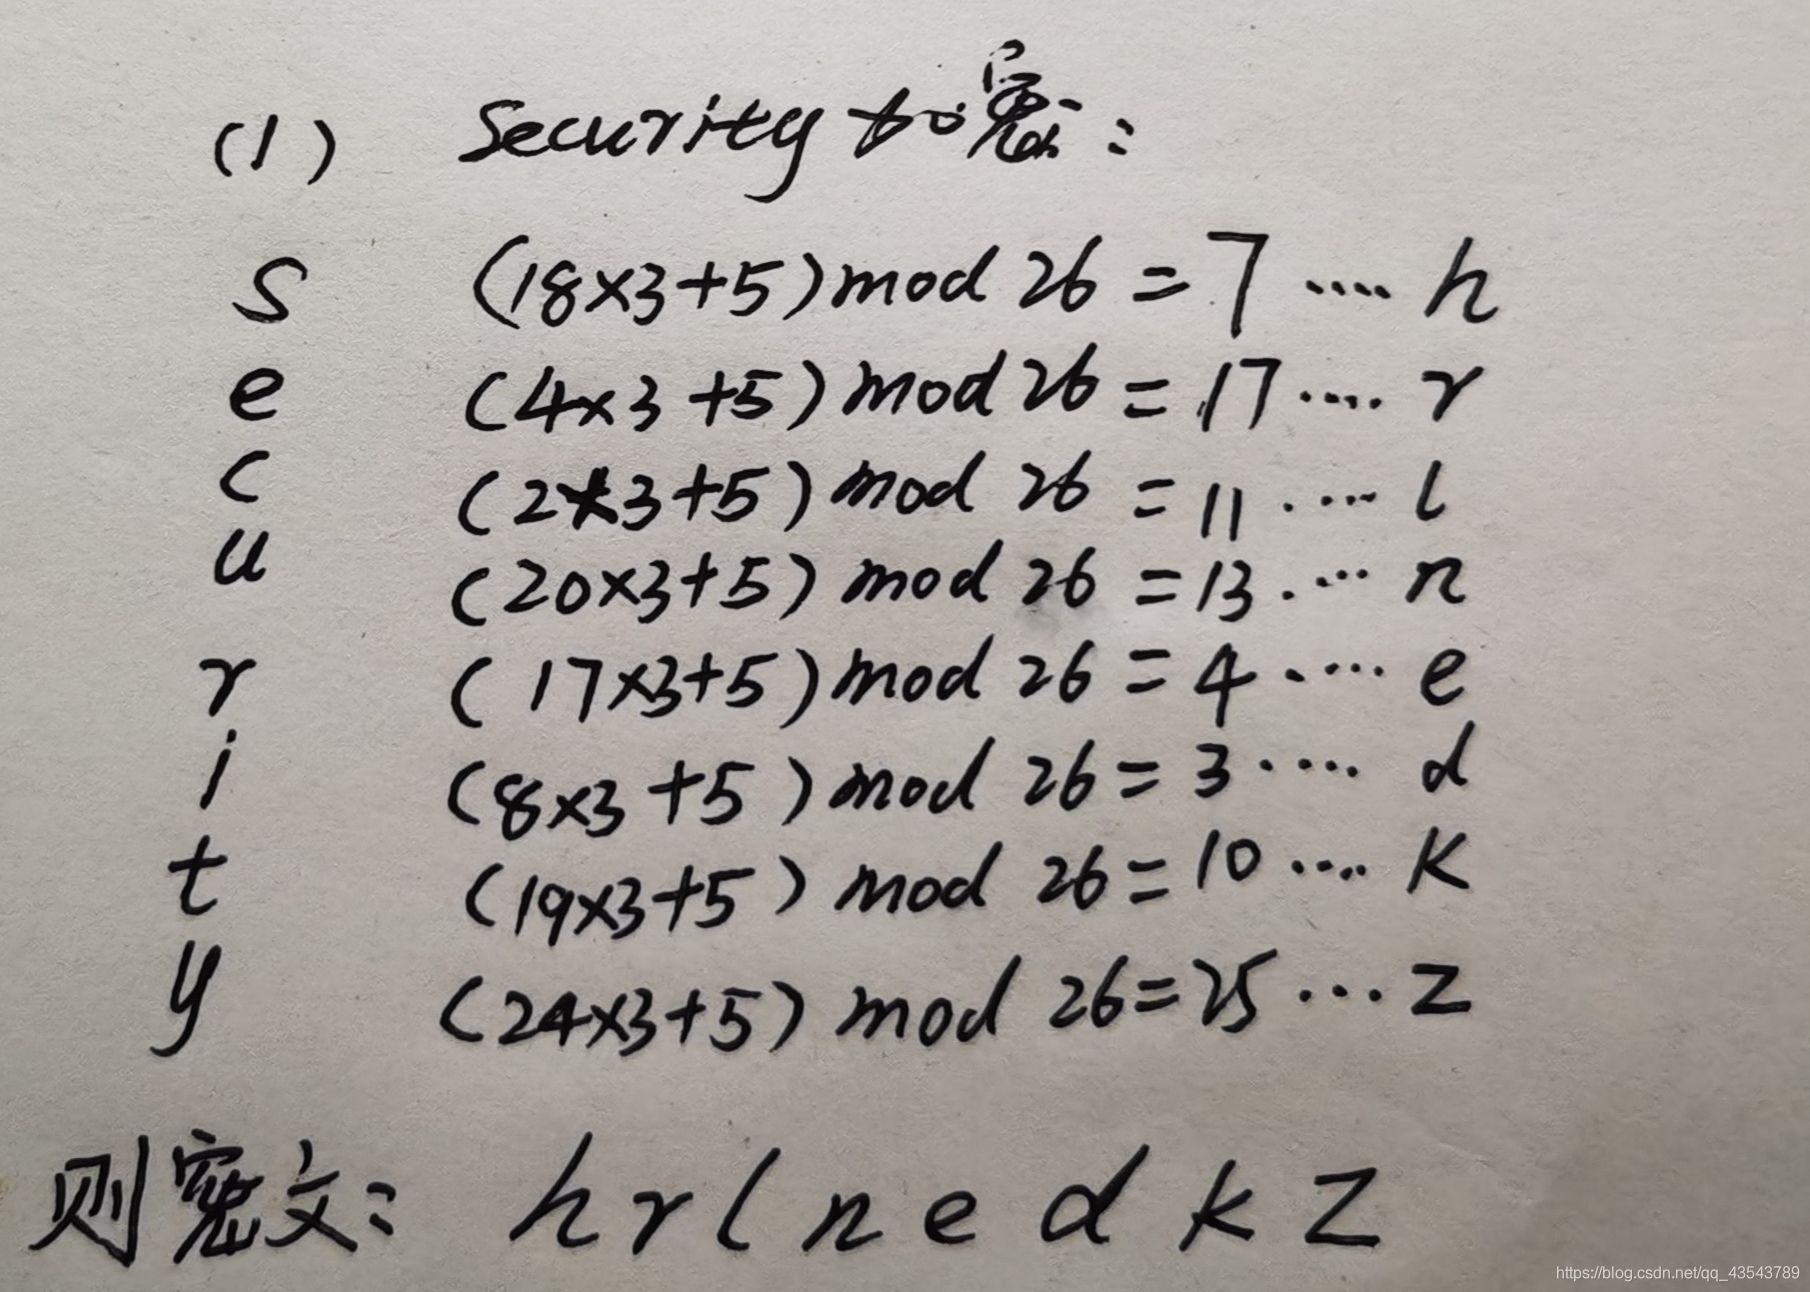 (1) Security加密:
s (18×3+5) mod 26 = 7 .... h
e (4×3+5) mod 26 = 17 .... r
c (2×3+5) mod 26 = 11 .... l
u (20×3+5) mod 26 = 13 .... n
r (17×3+5) mod 26 = 4 .... e
i (8×3+5) mod 26 = 3 .... d
t (19×3+5) mod 26 = 10 .... k
y (24×3+5) mod 26 = 25 ... z
则密文: h r l n e d k z
https://blog.csdn.net/qq_43543789